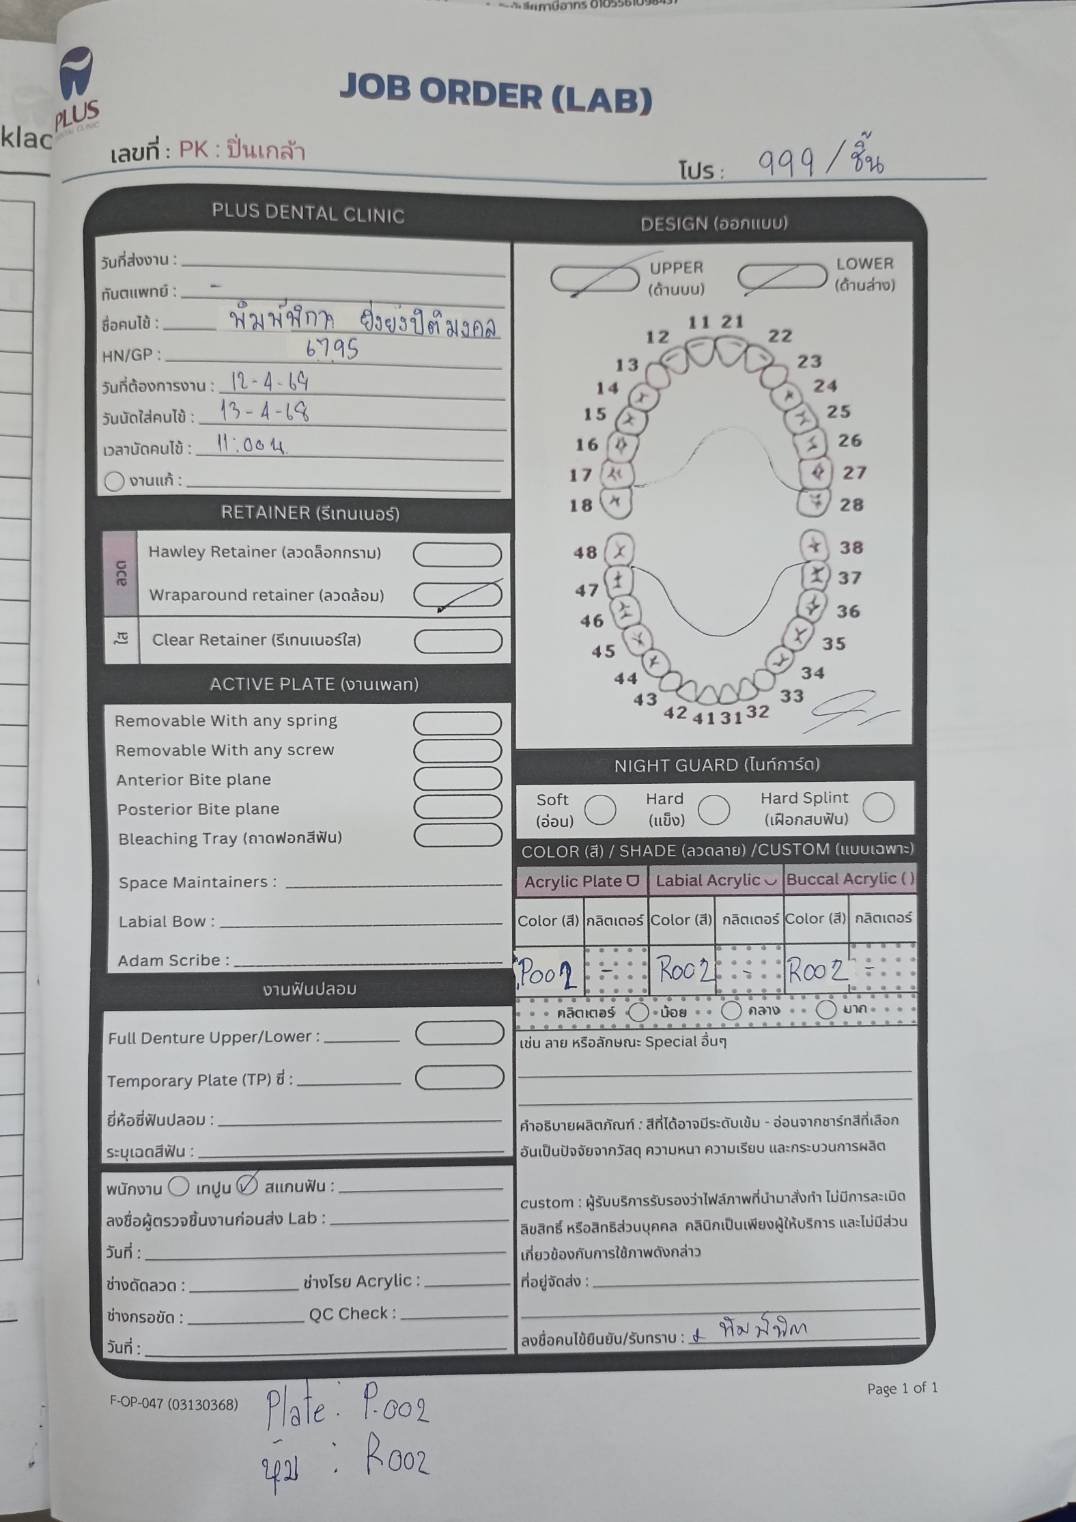 PLUS
klac
JOB ORDER (LAB)
เลขที่ : PK : ปิ่นเกล้า
โปร : 999 / ชิ้น
PLUS DENTAL CLINIC
วันที่ส่งงาน :
ทันตแพทย์ : -
ชื่อคนไข้ : พิมพ์พิกา ยิ่งยงปีติมงคล
HN/GP : 6795
วันที่ต้องการงาน : 12-4-69
วันนัดใส่คนไข้ : 13-4-68
เวลานัดคนไข้ : 11:00 น.
งานแก้ :
RETAINER (รีเทนเนอร์)
ลวด
Hawley Retainer (ลวดล็อกกราม)
Wraparound retainer (ลวดล้อม)
ใส
Clear Retainer (รีเทนเนอร์ใส)
ACTIVE PLATE (งานเพลท)
Removable With any spring
Removable With any screw
Anterior Bite plane
Posterior Bite plane
Bleaching Tray (ถาดฟอกสีฟัน)
Space Maintainers :
Labial Bow :
Adam Scribe :
งานฟันปลอม
Full Denture Upper/Lower :
Temporary Plate (TP) ซี่ :
ยี่ห้อซี่ฟันปลอม :
ระบุเฉดสีฟัน :
พนักงาน เทปูน สแกนฟัน :
ลงชื่อผู้ตรวจชิ้นงานก่อนส่ง Lab :
วันที่ :
ช่างดัดลวด : ช่างโรย Acrylic :
ช่างกรอขัด : QC Check :
วันที่ :
DESIGN (ออกแบบ)
UPPER
(ด้านบน)
LOWER
(ด้านล่าง)
11 21
12 22
13 23
14 24
15 25
16 26
17 27
18 28
48 38
47 37
46 36
45 35
44 34
43 33
42 41 31 32
NIGHT GUARD (ไนท์การ์ด)
Soft
(อ่อน)
Hard
(แข็ง)
Hard Splint
(เฝือกสบฟัน)
COLOR (สี) / SHADE (ลวดลาย) /CUSTOM (แบบเฉพาะ)
Acrylic Plate Labial Acrylic Buccal Acrylic ( )
Color (สี) กลิตเตอร์ Color (สี) กลิตเตอร์ Color (สี) กลิตเตอร์
P002 - R002 - R002 -
กลิตเตอร์ น้อย กลาง มาก
เช่น ลาย หรือลักษณะ Special อื่นๆ
คำอธิบายผลิตภัณฑ์ : สีที่ได้อาจมีระดับเข้ม - อ่อนจากชาร์ทสีที่เลือก
อันเป็นปัจจัยจากวัสดุ ความหนา ความเรียบ และกระบวนการผลิต
custom : ผู้รับบริการรับรองว่าไฟล์ภาพที่นำมาสั่งทำ ไม่มีการละเมิด
ลิขสิทธิ์ หรือสิทธิส่วนบุคคล คลินิกเป็นเพียงผู้ให้บริการ และไม่มีส่วน
เกี่ยวข้องกับการใช้ภาพดังกล่าว
ที่อยู่จัดส่ง :
ลงชื่อคนไข้ยืนยัน/รับทราบ : พิมพ์พิกา
F-OP-047 (03130368)
Page 1 of 1
Plate : P.002
หุ้ม : R002